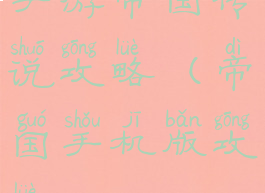 手游帝国传
shuō gōng lüè dì
说攻略（帝
guó shǒu jī bǎn gōng
国手机版攻
lüè